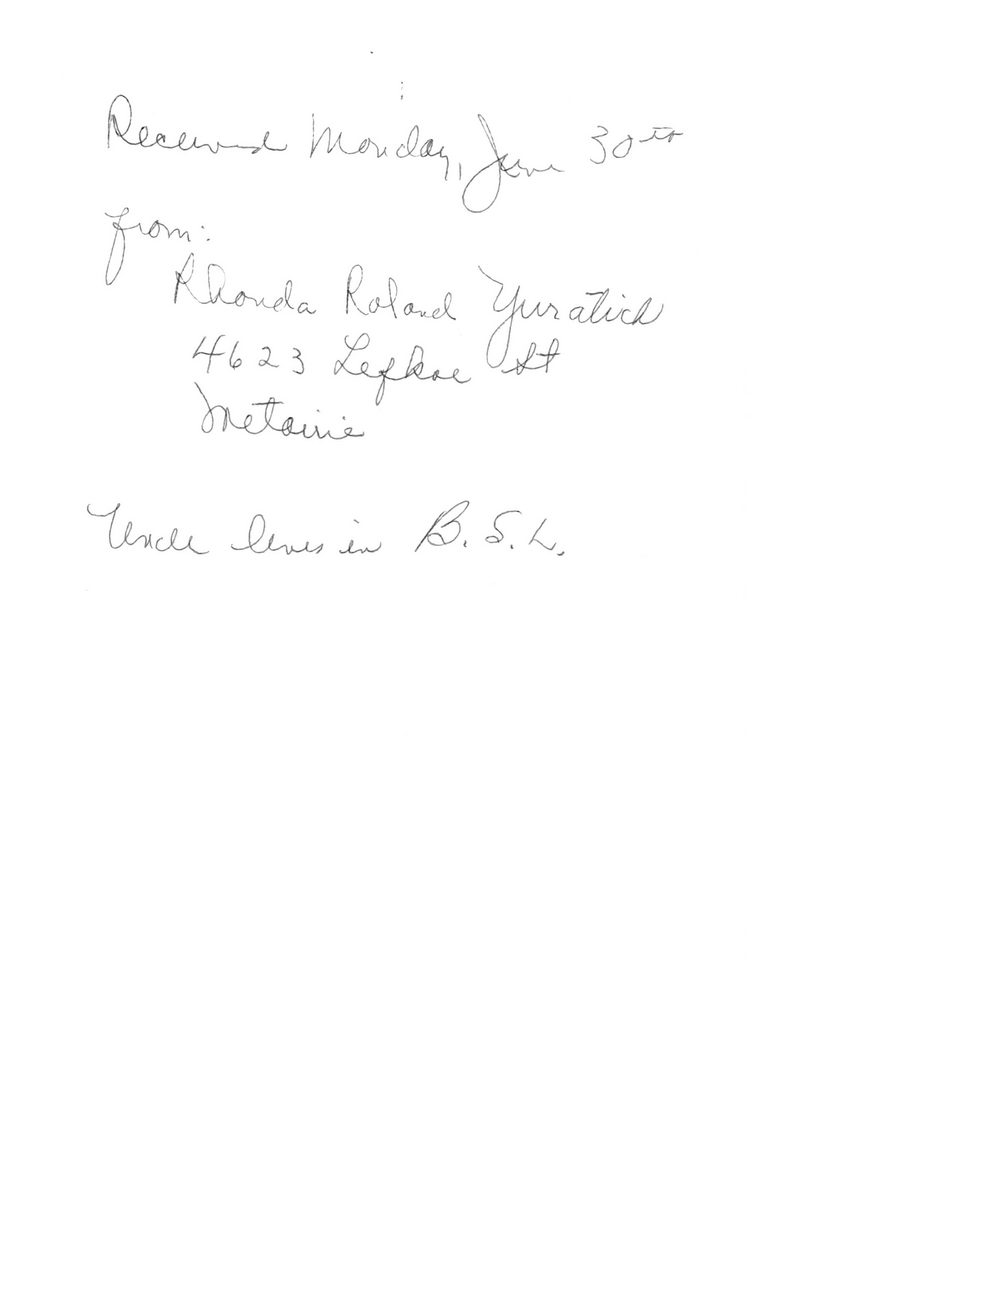 Received Monday, June 30th
from:
Rhonda Roland Yuratich
4623 Lefkoe St
Metairie
Uncle lives in B.S.L.